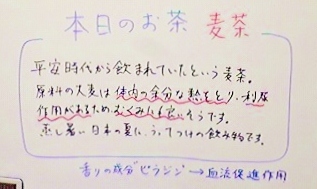 本日のお茶 麦茶
平安時代から飲まれていたという麦茶。
原料の大麦は体内の余分な熱をとり、利尿
作用があるためむくみにも良いそうです。
蒸し暑い日本の夏に、うってつけの飲み物です。
香りの成分ピラジン → 血流促進作用